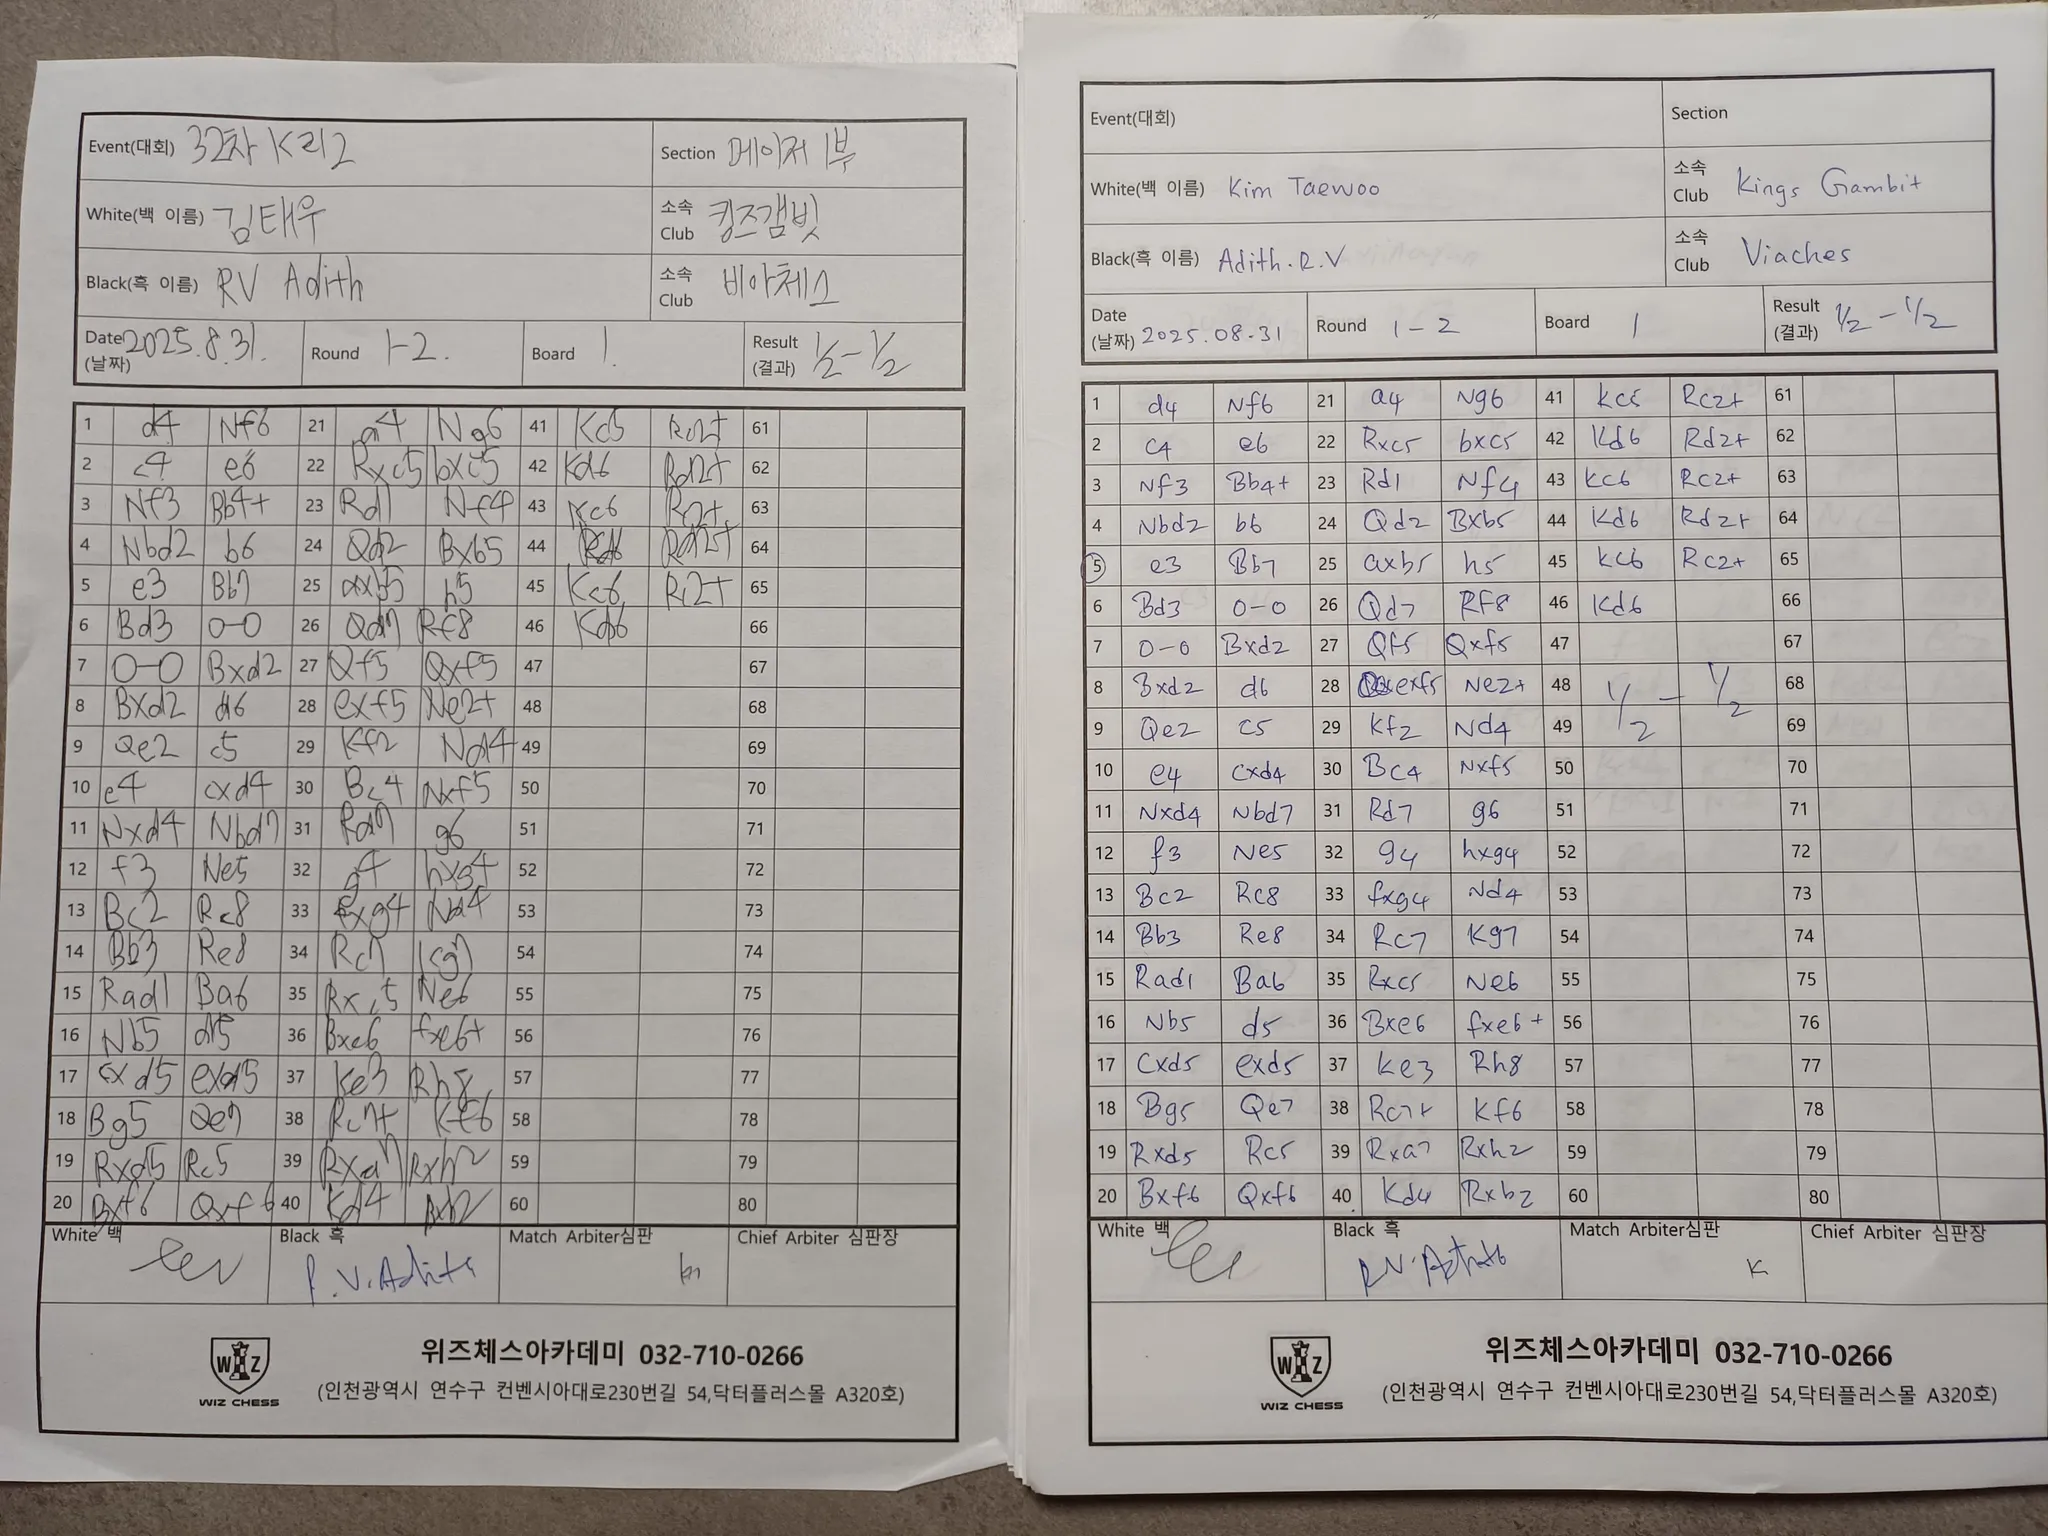 Event(대회) 32차 K리2 Section 메이저 1부
White(백 이름) 김태우 소속 Club 킹즈갬빗
Black(흑 이름) RV Adith 소속 Club 비아체스
Date(날짜) 2025.8.31. Round 1-2. Board 1. Result(결과) 1/2-1/2
1 d4 Nf6 21 a4 Ng6 41 Kc5 Rc2+ 61
2 c4 e6 22 Rxc5 bxc5 42 Kd6 Rd2+ 62
3 Nf3 Bb4+ 23 Rd1 Nf4 43 Kc6 Rc2+ 63
4 Nbd2 b6 24 Qd2 Bxb5 44 Kd6 Rd2+ 64
5 e3 Bb7 25 axb5 h5 45 Kc6 Rc2+ 65
6 Bd3 0-0 26 Qd7 Rf8 46 Kd6 66
7 0-0 Bxd2 27 Qf5 Qxf5 47 67
8 Bxd2 d6 28 exf5 Ne2+ 48 68
9 Qe2 c5 29 Kf2 Nd4 49 69
10 e4 cxd4 30 Bc4 Nxf5 50 70
11 Nxd4 Nbd7 31 Rd7 g6 51 71
12 f3 Ne5 32 g4 hxg4 52 72
13 Bc2 Rc8 33 fxg4 Nd4 53 73
14 Bb3 Re8 34 Rc7 Kg7 54 74
15 Rad1 Ba6 35 Rxc5 Ne6 55 75
16 Nb5 d5 36 Bxe6 fxe6+ 56 76
17 cxd5 exd5 37 Ke3 Rh8 57 77
18 Bg5 Qe7 38 Rc7+ Kf6 58 78
19 Rxd5 Rc5 39 Rxa7 Rxh2 59 79
20 Bxf6 Qxf6 40 Kd4 Rxb2 60 80
White 백 Black 흑 Match Arbiter심판 Chief Arbiter 심판장
R.V.Adith
WIZ
WIZ CHESS
위즈체스아카데미 032-710-0266
(인천광역시 연수구 컨벤시아대로230번길 54,닥터플러스몰 A320호)
Event(대회) Section
White(백 이름) Kim Taewoo 소속 Club Kings Gambit
Black(흑 이름) Adith.R.V 소속 Club Viaches
Date(날짜) 2025.08.31 Round 1-2 Board 1 Result(결과) 1/2-1/2
1 d4 Nf6 21 a4 Ng6 41 Kc5 Rc2+ 61
2 c4 e6 22 Rxc5 bxc5 42 Kd6 Rd2+ 62
3 Nf3 Bb4+ 23 Rd1 Nf4 43 Kc6 Rc2+ 63
4 Nbd2 b6 24 Qd2 Bxb5 44 Kd6 Rd2+ 64
5 e3 Bb7 25 axb5 h5 45 Kc6 Rc2+ 65
6 Bd3 0-0 26 Qd7 Rf8 46 Kd6 66
7 0-0 Bxd2 27 Qf5 Qxf5 47 67
8 Bxd2 d6 28 exf5 Ne2+ 48 1/2 - 1/2 68
9 Qe2 c5 29 Kf2 Nd4 49 69
10 e4 cxd4 30 Bc4 Nxf5 50 70
11 Nxd4 Nbd7 31 Rd7 g6 51 71
12 f3 Ne5 32 g4 hxg4 52 72
13 Bc2 Rc8 33 fxg4 Nd4 53 73
14 Bb3 Re8 34 Rc7 Kg7 54 74
15 Rad1 Ba6 35 Rxc5 Ne6 55 75
16 Nb5 d5 36 Bxe6 fxe6+ 56 76
17 Cxd5 exd5 37 Ke3 Rh8 57 77
18 Bg5 Qe7 38 Rc7+ Kf6 58 78
19 Rxd5 Rc5 39 Rxa7 Rxh2 59 79
20 Bxf6 Qxf6 40 Kd4 Rxb2 60 80
White 백 Black 흑 Match Arbiter심판 Chief Arbiter 심판장
RV.Adith
K
WIZ
WIZ CHESS
위즈체스아카데미 032-710-0266
(인천광역시 연수구 컨벤시아대로230번길 54,닥터플러스몰 A320호)